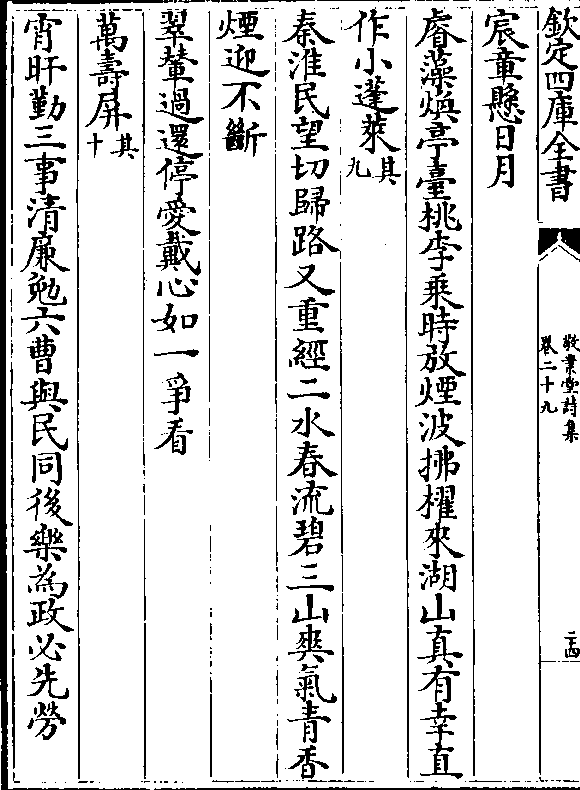 欽定四庫全書
敬業堂詩集
卷二十九
二四
宸章懸日月
睿藻煥亭臺桃李乘時放煙波拂櫂來湖山真有幸直
作小蓬萊其九
秦淮民望切歸路又重經二水春流碧三山爽氣青香
煙迎不斷
翠輦過還停愛戴心如一爭看
萬壽屏其十
宵旰勤三事清廉勉六曹與民同後樂為政必先勞